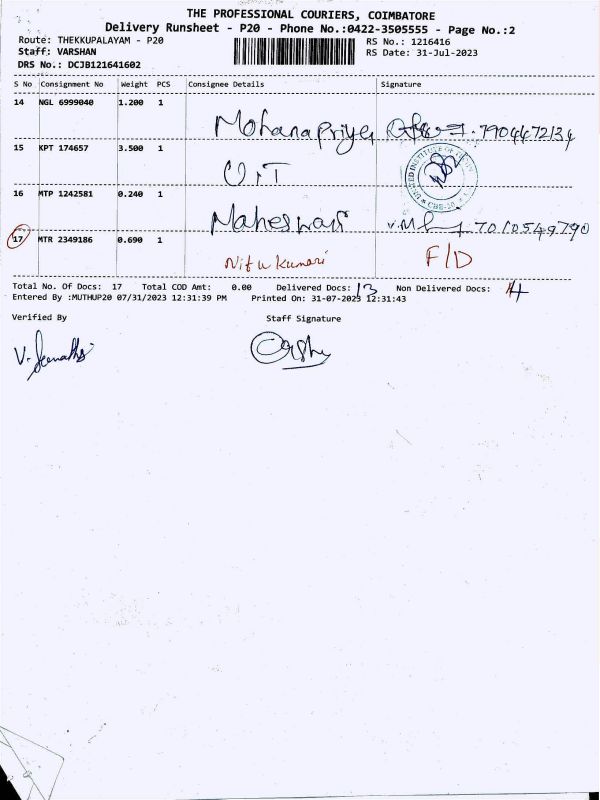 THE PROFESSIONAL COURIERS, COIMBATORE
Delivery Runsheet - P20 - Phone No.:0422-3505555 - Page No.:2
Route: THEKKUPALAYAM - P20 RS No.: 1216416
Staff: VARSHAN RS Date: 31-Jul-2023
DRS No.: DCJB121641602
S No Consignment No Weight PCS Consignee Details Signature
14 NGL 6999040 1.200 1
Mohanapriya 7904472134
15 KPT 174657 3.500 1
U.I.T
16 MTP 1242581 0.240 1
Maheswari 7010549790
17 MTR 2349186 0.690 1
Nitu Kumari F/D
Total No. Of Docs: 17 Total COD Amt: 0.00 Delivered Docs: 13 Non Delivered Docs: 4
Entered By :MUTHUP20 07/31/2023 12:31:39 PM Printed On: 31-07-2023 12:31:43
Verified By Staff Signature